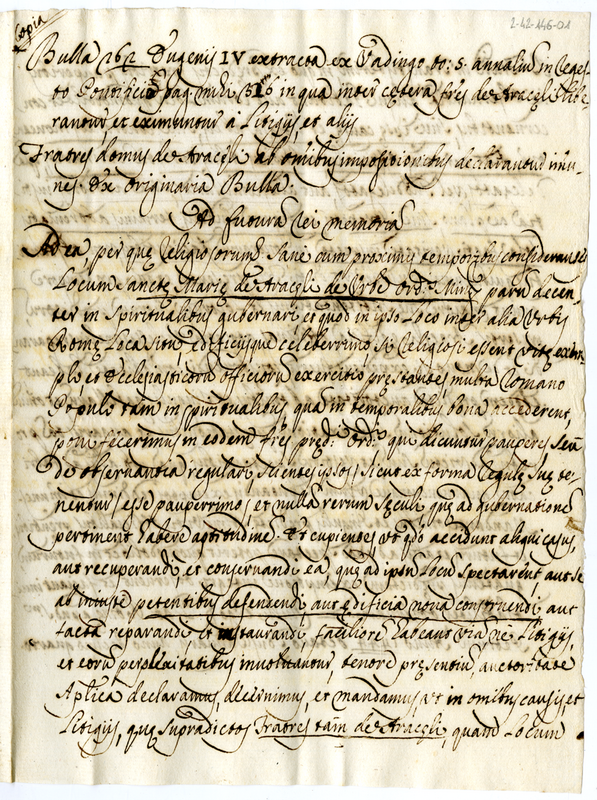 Copia
2-42-146-01
Bulla 262 Eugenij IV extracta ex Vadingo to: 5. annaliũ in Reges-
to Pontificio pag. mihi 316 in qua inter cętera frẽs de Aracęli libe-
rantur, et eximuntur à Litigijs, et alijs
Fratres domus de Aracęli ab omnibus impositionibus declarantur imũ-
nes. Ex originaria Bulla.
Ad futurã rei memoriã
Ad ea, per quę Religiosorum. Sanè cum proximis temporibus considerantes
Locum Sanctę Marię de Aracęli de Urbe Ord.s Minõ parũ decen-
ter in Spiritualibus gubernari et quod in ipso Loco inter alia Urbis
Romę Loca situ, edificijsque celeberrimo, si Religiosi essent vitę exem-
plo, et Ecclesiasticorũ officiorũ exercitio pręstantes, multa Romano
Populo tam in spiritualibus, quã in temporalibus bona accederent,
poni fecerimus in eodem frẽs pręd.i Ord.s qui dicuntur pauperes, seù
de observantia regulari scientes ipsos, sicut ex forma Regulę suę te-
nentur, esse pauperrimos, et nullã rerum Sęculi quę ad gubernationẽ
pertinent, habere aptitudinẽ. Et cupientes, ut qdo accidunt aliqui casus,
aut recuperandi, et conservandi ea, quę ad ipsũ Locũ spectarent, aut se
ab iniustè petentibus defendendi, aut edificia nova construendi, aut
facta reparandi et instaurandi, faciliorẽ habeant viã, nè Litigijs,
et eorũ perplexitatibus involvantur, tenore pręsentiũ, auctoritate
Aplica declaramus, decernimus, et mandamus, ut in omnibus causis, et
Litigijs, quę supradictos Fratres tam de Aracęli, quam Locum